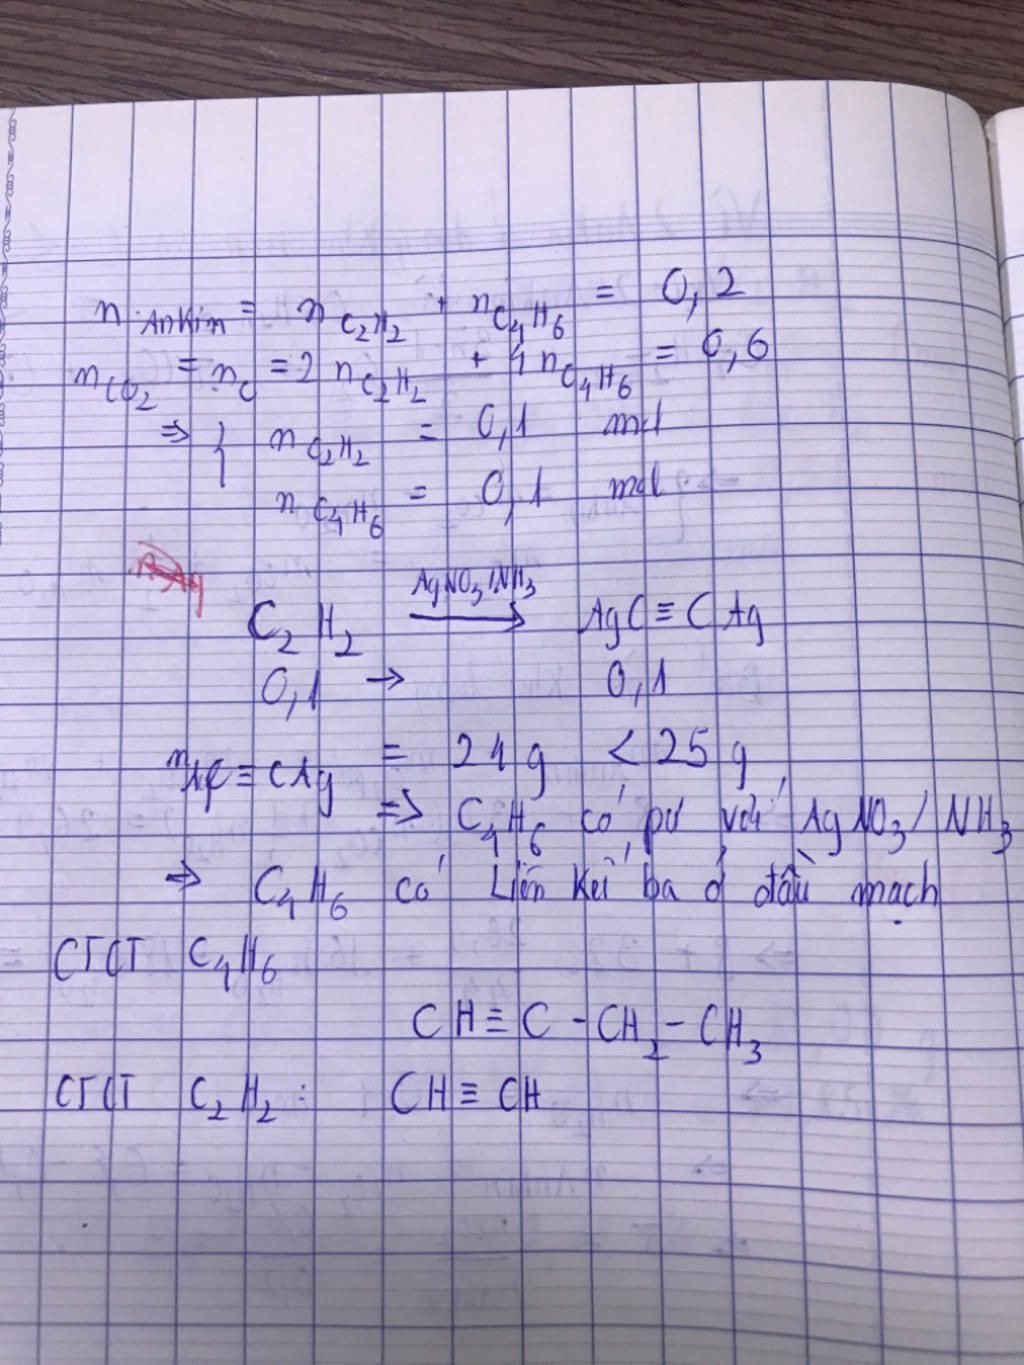 n Ankin = n C2H2 + n C4H6 = 0,2
n CO2 = n C = 2 n C2H2 + 4 n C4H6 = 0,6
=> { n C2H2 = 0,1 mol
n C4H6 = 0,1 mol
C2H2 AgNO3/NH3 → AgC ≡ CAg
0,1 → 0,1
m AgC ≡ CAg = 24 g < 25 g
=> C4H6 có pư với AgNO3/NH3
=> C4H6 có Liên kết ba ở đầu mạch
CTCT C4H6
CH ≡ C - CH2 - CH3
CTCT C2H2 : CH ≡ CH